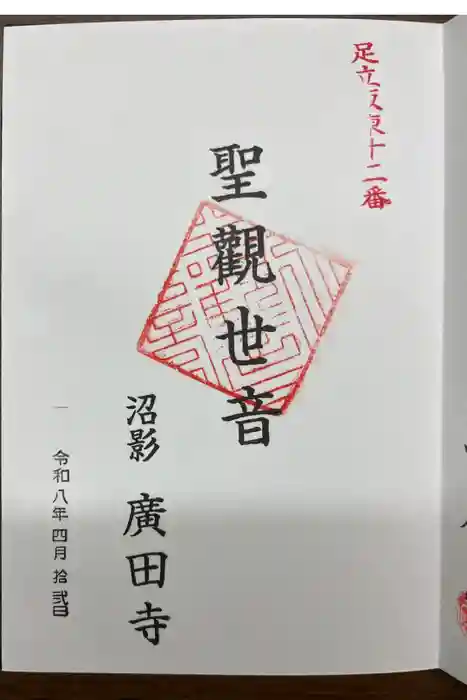 足立坂東十二番
聖觀世音
沼影 廣田寺
令和八年四月拾弐日